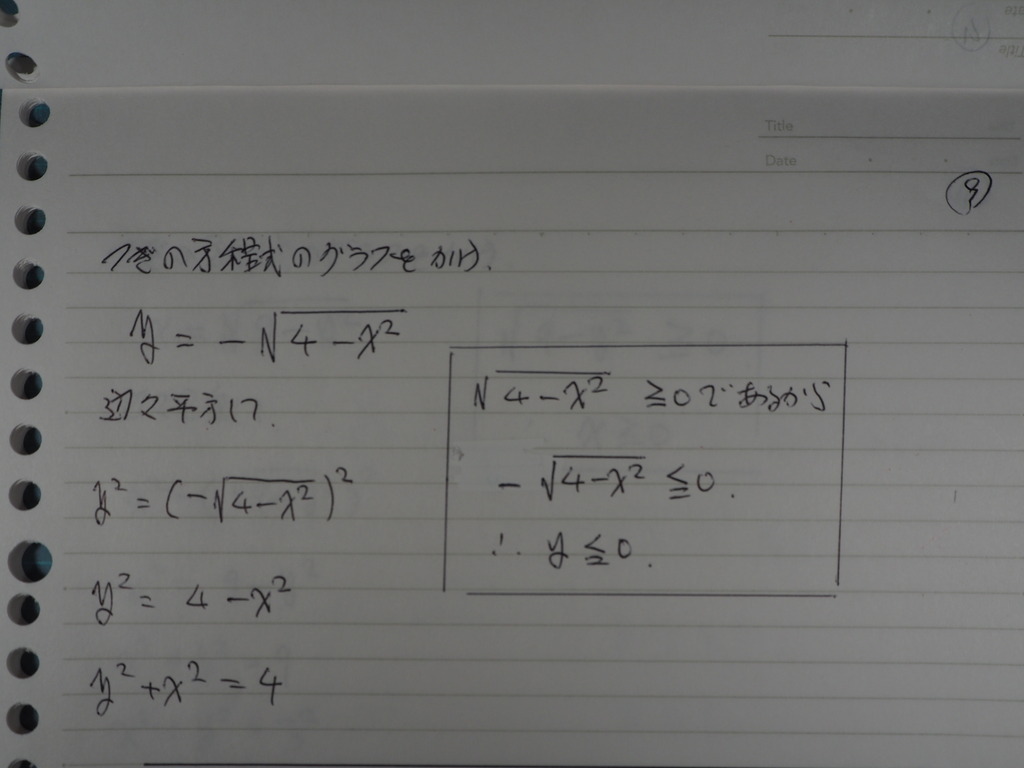 Title
Date
9
つぎの方程式のグラフをかけ.
y = -√(4-x²)
辺々平方して.
y² = (-√(4-x²))²
y² = 4-x²
y²+x² = 4
√(4-x²) ≧0であるから
-√(4-x²) ≦0.
∴ y≦0.